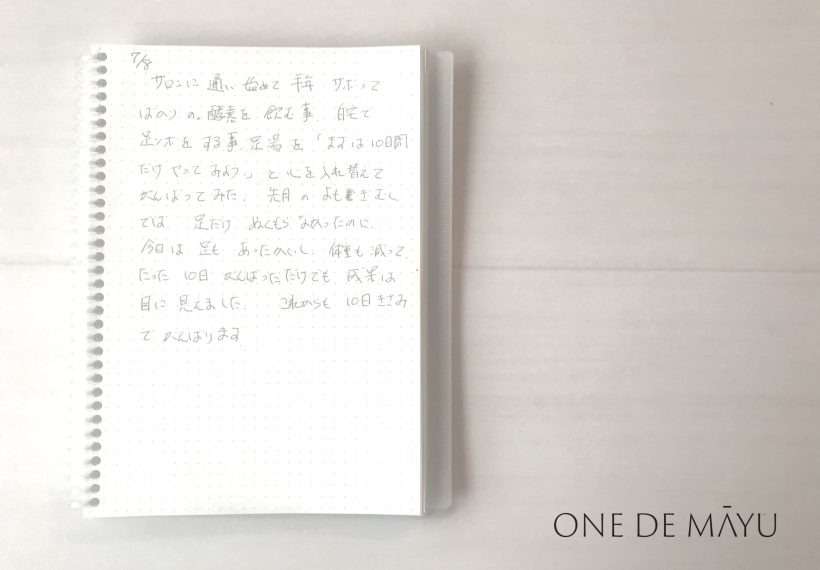 7/8
サロンに 通い 始めて 半年 サボって
ばかりの。酵素を 飲む事、自宅で
足ツボを する事、足湯を、「まずは10日間
だけ やって みよう。」と 心を入れ替えて
がんばってみた。先月の よもぎむし
では 足だけ ぬくもら なかったのに、
今日は 足も あったかいし、体重も 減って
たった 10日 がんばっただけでも、成果は
目に 見えました。 これからも 10日きざみ
で がんばります
ONE DE MĀYU